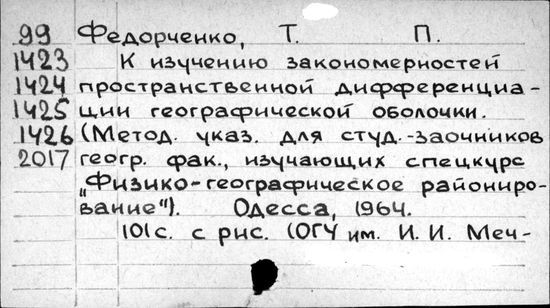 99 Федорченко, Т. П.
1423 К изучению закономерностей
1424 пространственной дифференциа-
1425 ции географической оболочки.
1426 (Метод. указ. для студ.-заочников
2017 геогр. фак., изучающих спецкурс
„Физико-географическое райониро-
вание"). Одесса, 1964.
101 с. с рис. (ОГУ им. И. И. Меч-